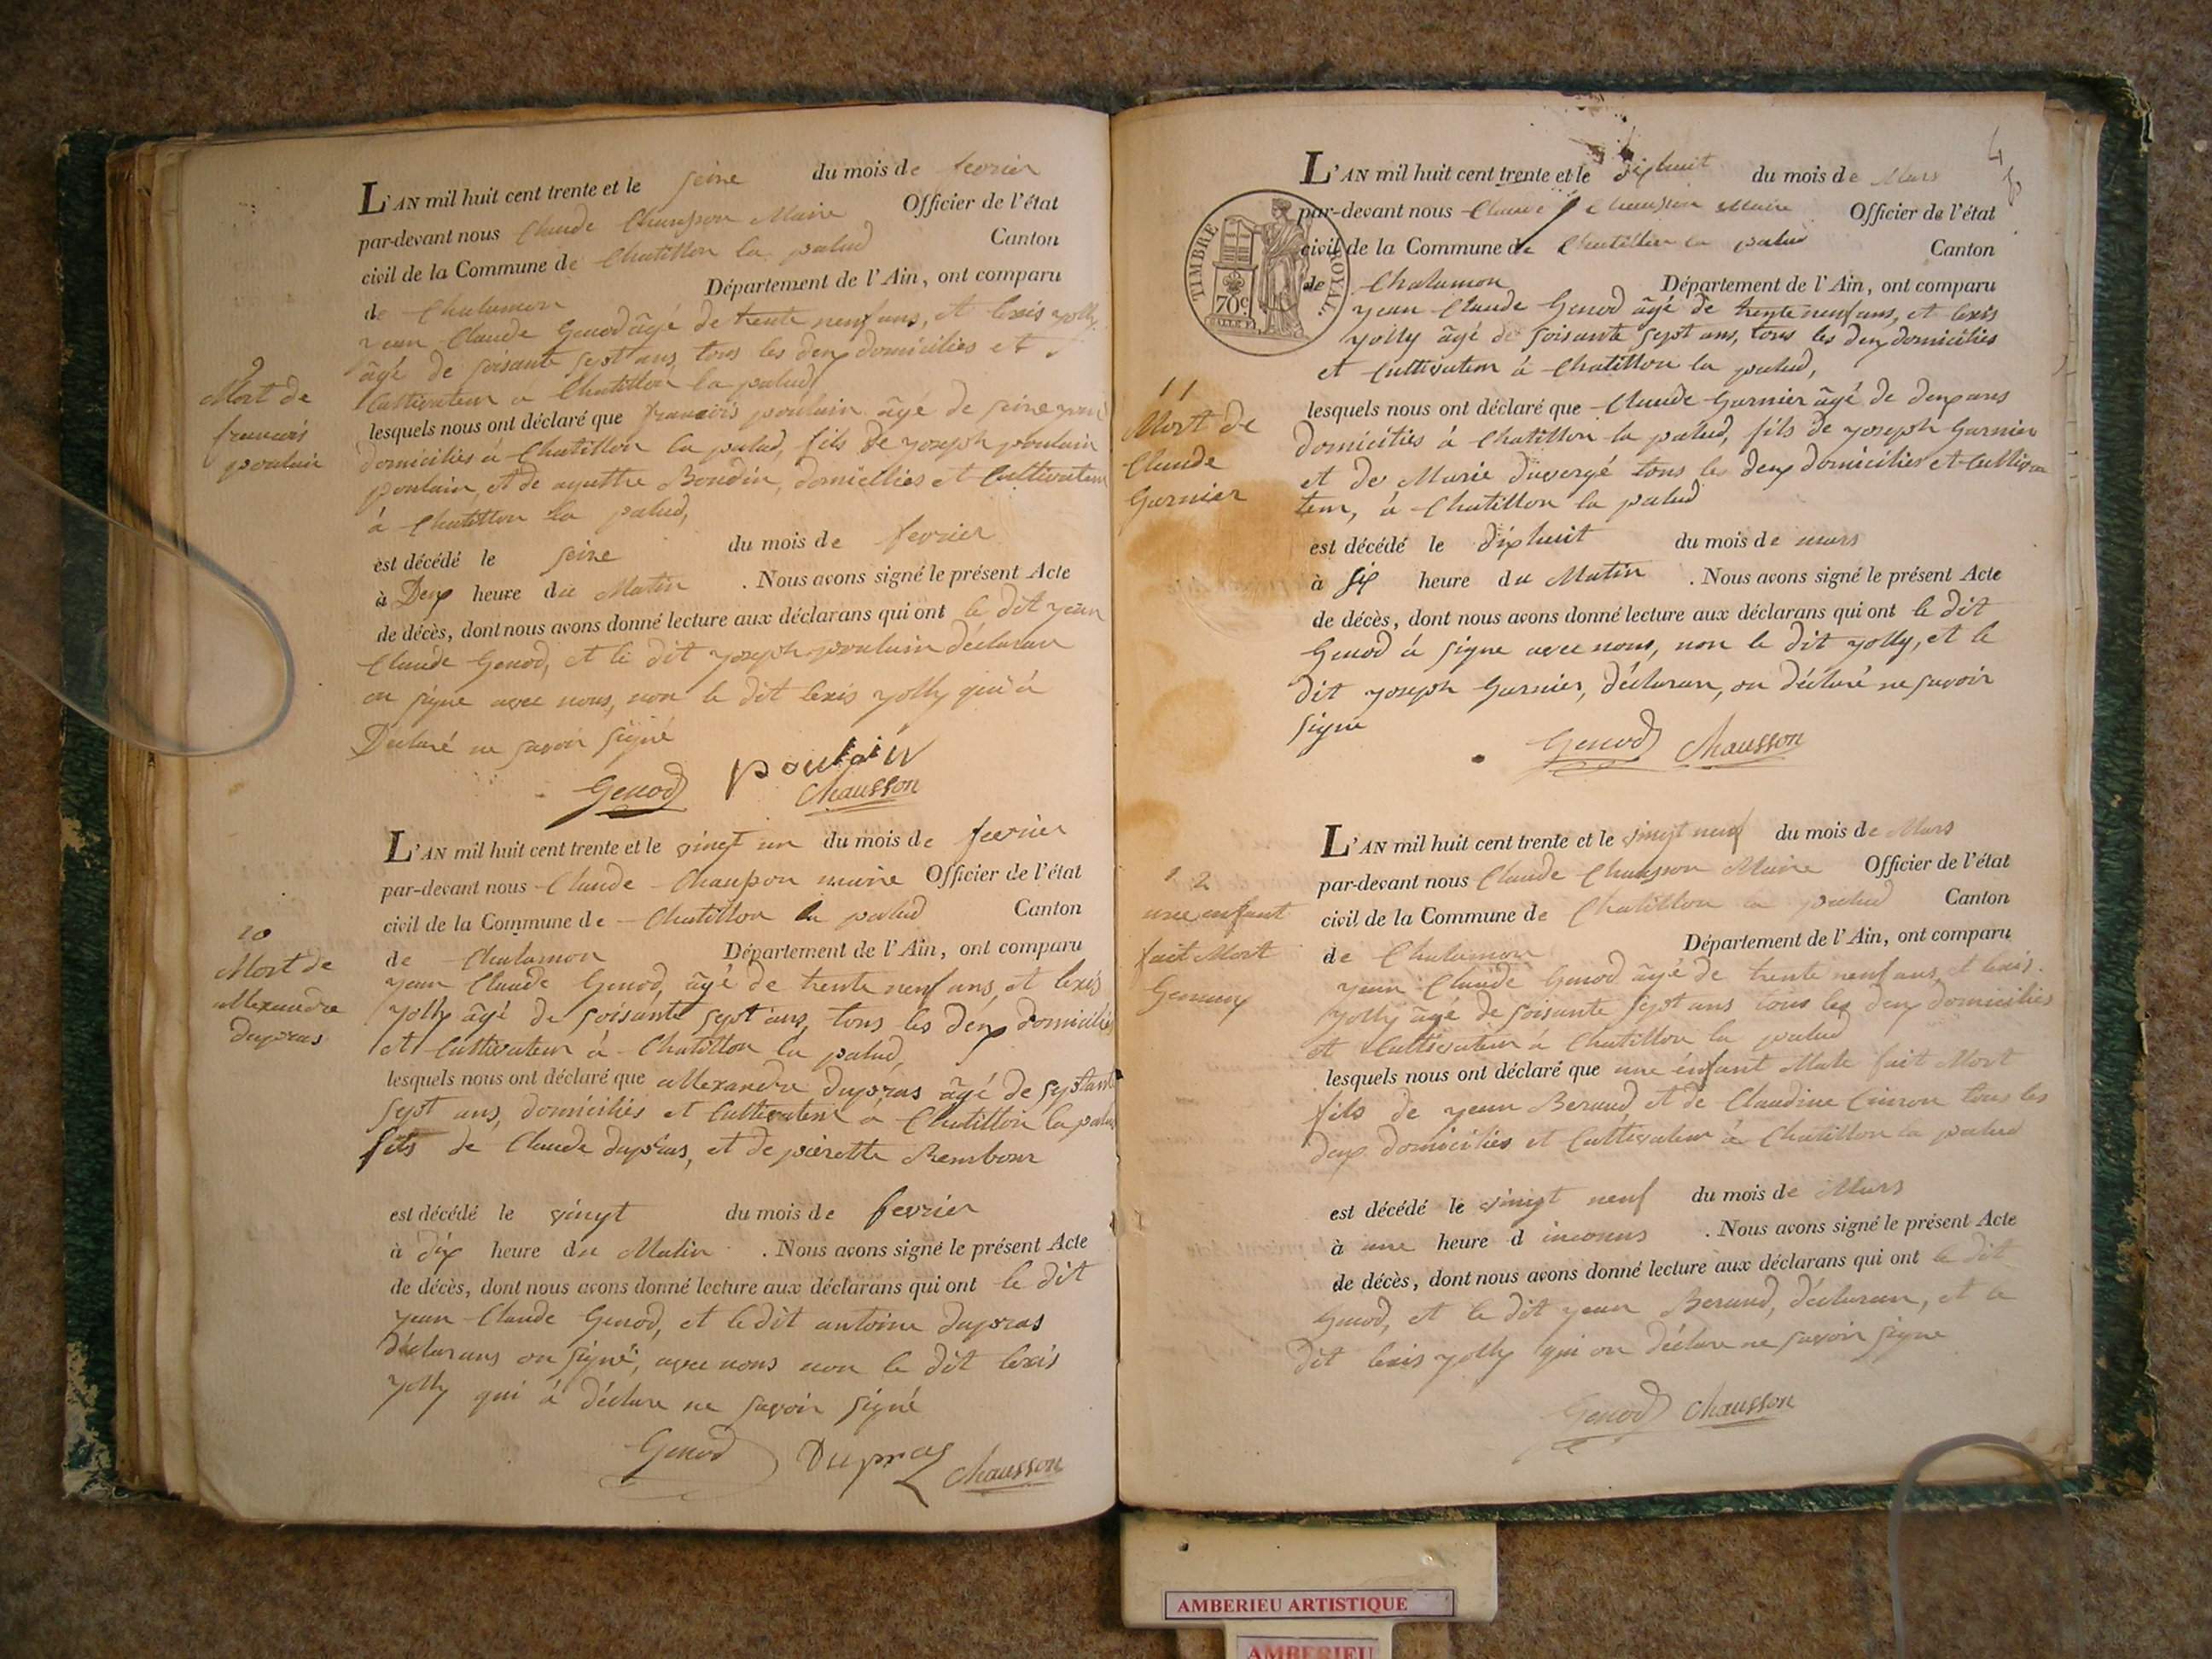 L'AN mil huit cent trente et le seize du mois de fevrier
par-devant nous Claude Chausson Maire Officier de l'état
civil de la Commune de Chatillon la palud Canton
de Chalamon Département de l'Ain, ont comparu
jean Claude Genod âgé de trente neuf ans, et lexis jolly
âgé de soisante sept ans, tous les deux domiciliés et
Cultivateur a Chatillon la palud,
lesquels nous ont déclaré que francois poulain âgé de seize
domiciliés à Chatillon la palud, fils de joseph poulain
poulain, et de Boudin, domicillies et Cultivateur
à Chatillon la palud,
est décédé le seize du mois de fevrier
à Deux heure du Matin . Nous avons signé le présent Acte
de décès, dont nous avons donné lecture aux déclarans qui ont le dit jean
Claude Genod, et le dit joseph poulain déclaran
on signe avec nous, non le dit lexis jolly qui à
Déclaré ne savoir signé
Genod poulain
Chausson
9
Mort de
francois
poulain
L'AN mil huit cent trente et le vingt un du mois de fevrier
par-devant nous Claude Chausson maire Officier de l'état
civil de la Commune de Chatillon la palud Canton
de Chalamon Département de l'Ain, ont comparu
jean Claude Genod, âgé de trente neuf ans, et lexis
jolly âgé de soisante sept ans, tous les deux domiciliés
et Cultivateur à Chatillon la palud,
lesquels nous ont déclaré que allexandre dupras âgé de septante
sept ans, domiciliés et Cultivateur a Chatillon la palud
fils de Claude dupras, et de pierette Rembour
est décédé le vingt du mois de fevrier
à dix heure du Matin . Nous avons signé le présent Acte
de décès, dont nous avons donné lecture aux déclarans qui ont le dit
jean Claude Genod, et le dit antoine dupras
déclarans on signé, avec nous non le dit lexis
jolly qui à déclare ne savoir signé
Genod Dupras Chausson
10
Mort de
allexandre
dupras
4
L'AN mil huit cent trente et le dixhuit du mois de Mars
par-devant nous Claude Chausson Maire Officier de l'état
civil de la Commune de Chatillon la palud Canton
de Chalamon Département de l'Ain, ont comparu
TIMBRE ROYAL
70c
jean Claude Genod âgé de trente neuf ans, et lexis
jolly âgé de soisante sept ans, tous les deux domiciliés
et Cultivateur à Chatillon la palud,
lesquels nous ont déclaré que Claude Garnier âgé de deux ans
domiciliés à Chatillon la palud, fils de joseph Garnier
et de Marie duvergé tous les deux domicilies et Cultiva
teur, à Chatillon la palud
est décédé le dixhuit du mois de mars
à six heure du Matin . Nous avons signé le présent Acte
de décès, dont nous avons donné lecture aux déclarans qui ont le dit
Genod à signe avec nous, non le dit jolly, et le
dit joseph Garnier, déclaran, on déclaré ne savoir
signe
Genod Chausson
11
Mort de
Claude
Garnier
L'AN mil huit cent trente et le vingt neuf du mois de Mars
par-devant nous Claude Chausson Maire Officier de l'état
civil de la Commune de Chatillon la palud Canton
de Chalamon Département de l'Ain, ont comparu
jean Claude Genod âgé de trente neuf ans, et lexis
jolly âgé de soisante sept ans tous les deux domiciliés
et Cultivateur à Chatillon la palud
lesquels nous ont déclaré que une enfant Male fait Mort
fils de jean Beraud, et de Claudine tous les
deux domiciliés et Cultivateur à Chatillon la palud
est décédé le vingt neuf du mois de Mars
à une heure d inconus . Nous avons signé le présent Acte
de décès, dont nous avons donné lecture aux déclarans qui ont le dit
Genod, et le dit jean Beraud, déclaran, et le
dit lexis jolly qui on déclare ne savoir signe
Genod Chausson
12
une enfant
fait Mort
AMBERIEU ARTISTIQUE
AMBERIEU